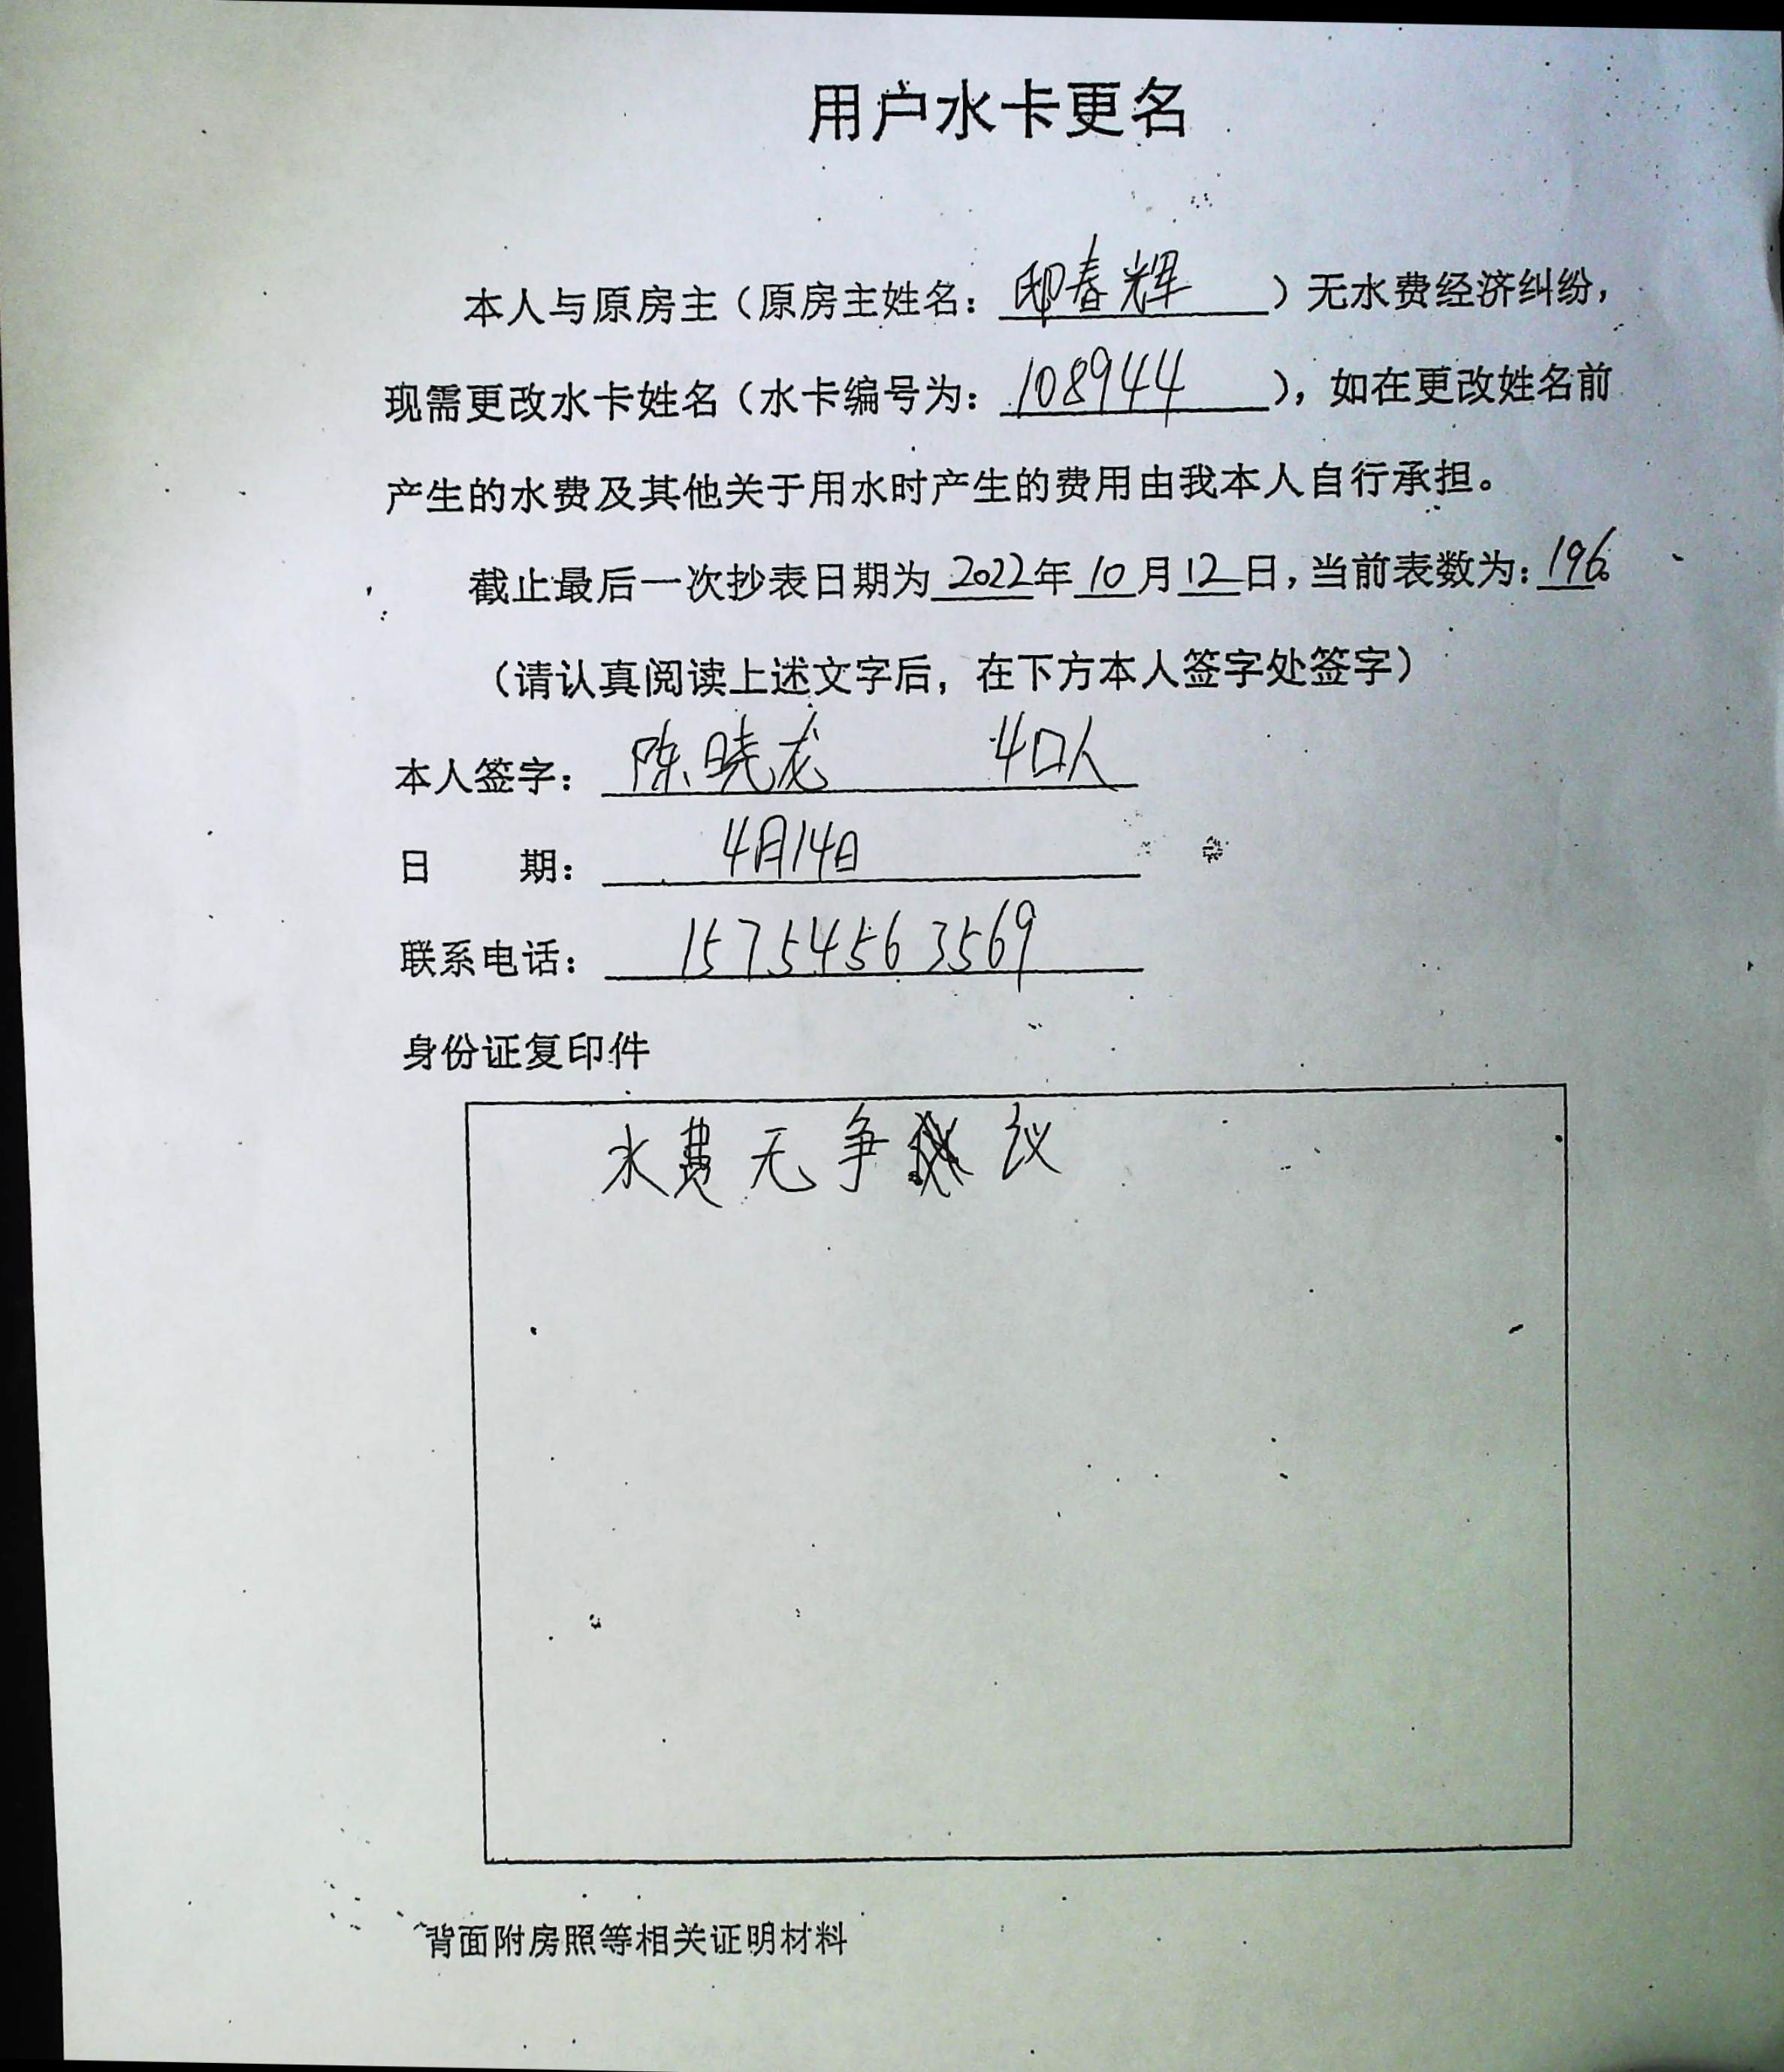 用户水卡更名
本人与原房主（原房主姓名：邸春辉）无水费经济纠纷，
现需更改水卡姓名（水卡编号为：108944），如在更改姓名前
产生的水费及其他关于用水时产生的费用由我本人自行承担。
截止最后一次抄表日期为2022年10月12日，当前表数为：196。
（请认真阅读上述文字后，在下方本人签字处签字）
本人签字：陈晓龙 4口人
日 期：4月14日
联系电话：15754563569
身份证复印件
水费无争议
背面附房照等相关证明材料